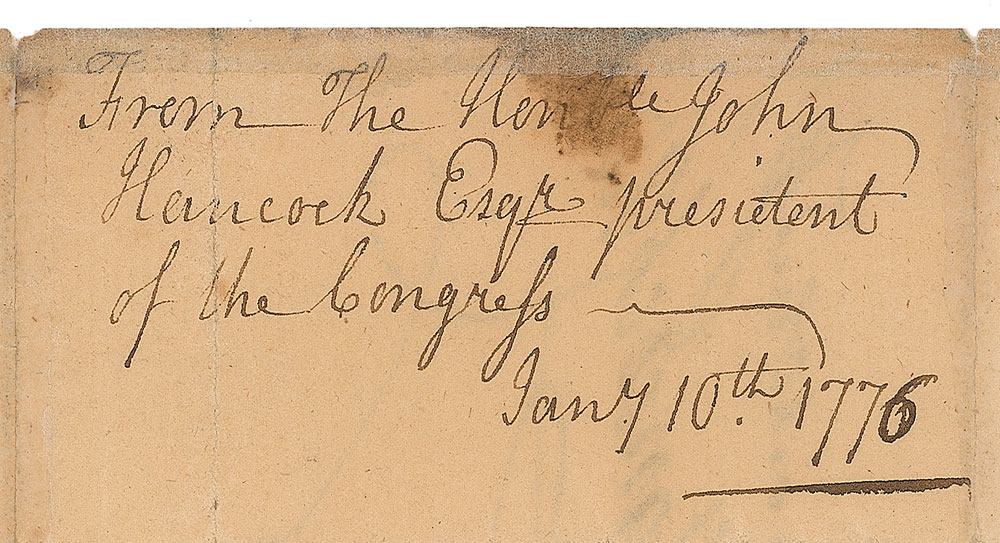 From The Honble John
Hancock Esqr president
of the Congreſs
Jany 10th. 1776